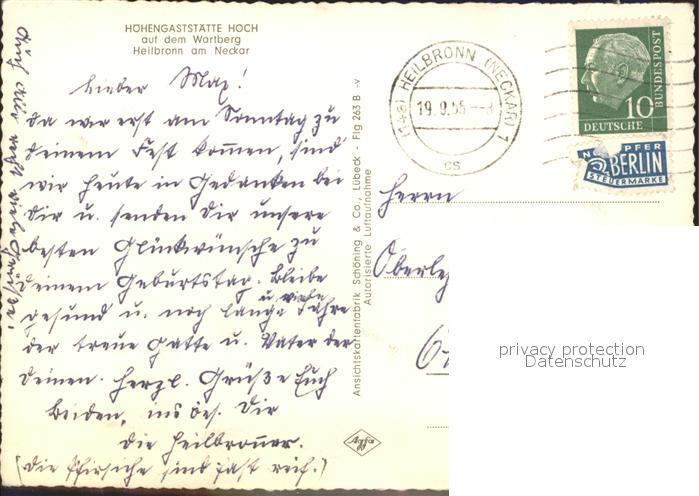 HÖHENGASTSTÄTTE HOCH
auf dem Wartberg
Heilbronn am Neckar
Lieber Max!
Da wir erst am Sonntag zu
Deinem Fest kommen, sind
wir heute in Gedanken bei
Dir u. senden Dir unsere
besten Glückwünsche zu
Deinem Geburtstag. Bleibe
gesund u. noch lange u. viele Jahre
der treue Gatte u. Vater der
Deinen. Herzl. Grüße Euch
beiden, ins bes. Dir
die Heilbronner.
(Die Pfirsiche sind fast reif.)
Ansichtskartenfabrik Schöning & Co., Lübeck - Flg 263 B -v
Autorisierte Luftaufnahme
Agfa
(14a) HEILBRONN (NECKAR) 1
19.9.55
cs
10
DEUTSCHE
BUNDESPOST
BERLIN
STEUERMARKE
Herrn
privacy protection
Datenschutz